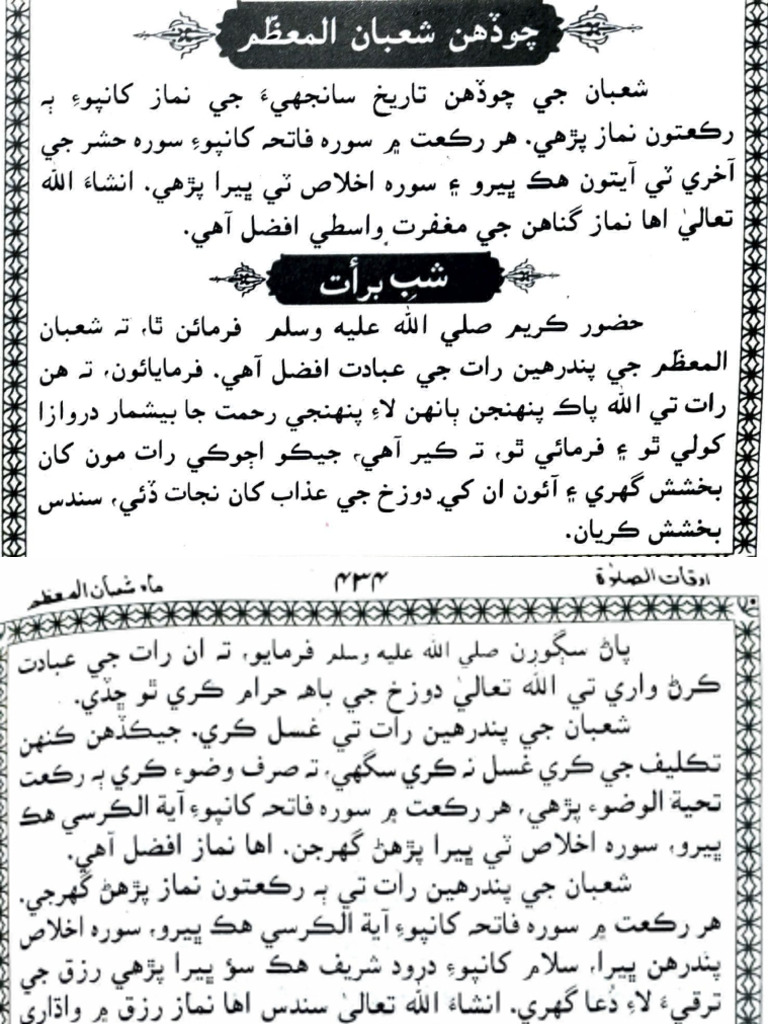 چوڏهن شعبان المعظّم
شعبان جي چوڏهن تاريخ سانجهيءَ جي نماز کانپوءِ ٻه
رڪعتون نماز پڙهي. هر رڪعت ۾ سوره فاتحہ کانپوءِ سوره حشر جي
آخري ٽي آيتون هڪ ڀيرو ۽ سوره اخلاص ٽي ڀيرا پڙهي. انشاءَ الله
تعاليٰ اها نماز گناهن جي مغفرت واسطي افضل آهي.
شبِ برأت
حضور ڪريم صلي الله عليه وسلم فرمائن ٿا، تہ شعبان
المعظّم جي پندرهين رات جي عبادت افضل آهي. فرمايائون، تہ هن
رات تي الله پاڪ پنهنجن ٻانهن لاءِ پنهنجي رحمت جا بيشمار دروازا
کولي ٿو ۽ فرمائي ٿو، تہ ڪير آهي، جيڪو اڄوڪي رات مون کان
بخشش گهري ۽ آئون ان کي دوزخ جي عذاب کان نجات ڏئي، سندس
بخشش ڪريان.
اوقات الصلوٰة ۴۳۴ ماه شعبان المعظم
پاڻ سڳورن صلي الله عليه وسلم فرمايو، تہ ان رات جي عبادت
ڪرڻ واري تي الله تعاليٰ دوزخ جي باهہ حرام ڪري ٿو ڇڏي.
شعبان جي پندرهين رات تي غسل ڪري. جيڪڏهن ڪنهن
تڪليف جي ڪري غسل نہ ڪري سگهي، تہ صرف وضوء ڪري ٻہ رڪعت
تحية الوضوء پڙهي، هر رڪعت ۾ سوره فاتحہ کانپوءِ آية الڪرسي هڪ
ڀيرو، سوره اخلاص ٽي ڀيرا پڙهڻ گهرجن. اها نماز افضل آهي.
شعبان جي پندرهين رات تي ٻہ رڪعتون نماز پڙهڻ گهرجي.
هر رڪعت ۾ سوره فاتحہ کانپوءِ آية الڪرسي هڪ ڀيرو، سوره اخلاص
پندرهن ڀيرا، سلام کانپوءِ درود شريف هڪ سؤ ڀيرا پڙهي رزق جي
ترقيءَ لاءِ دُعا گهري. انشاءَ الله تعاليٰ سندس اها نماز رزق ۾ واڌاري